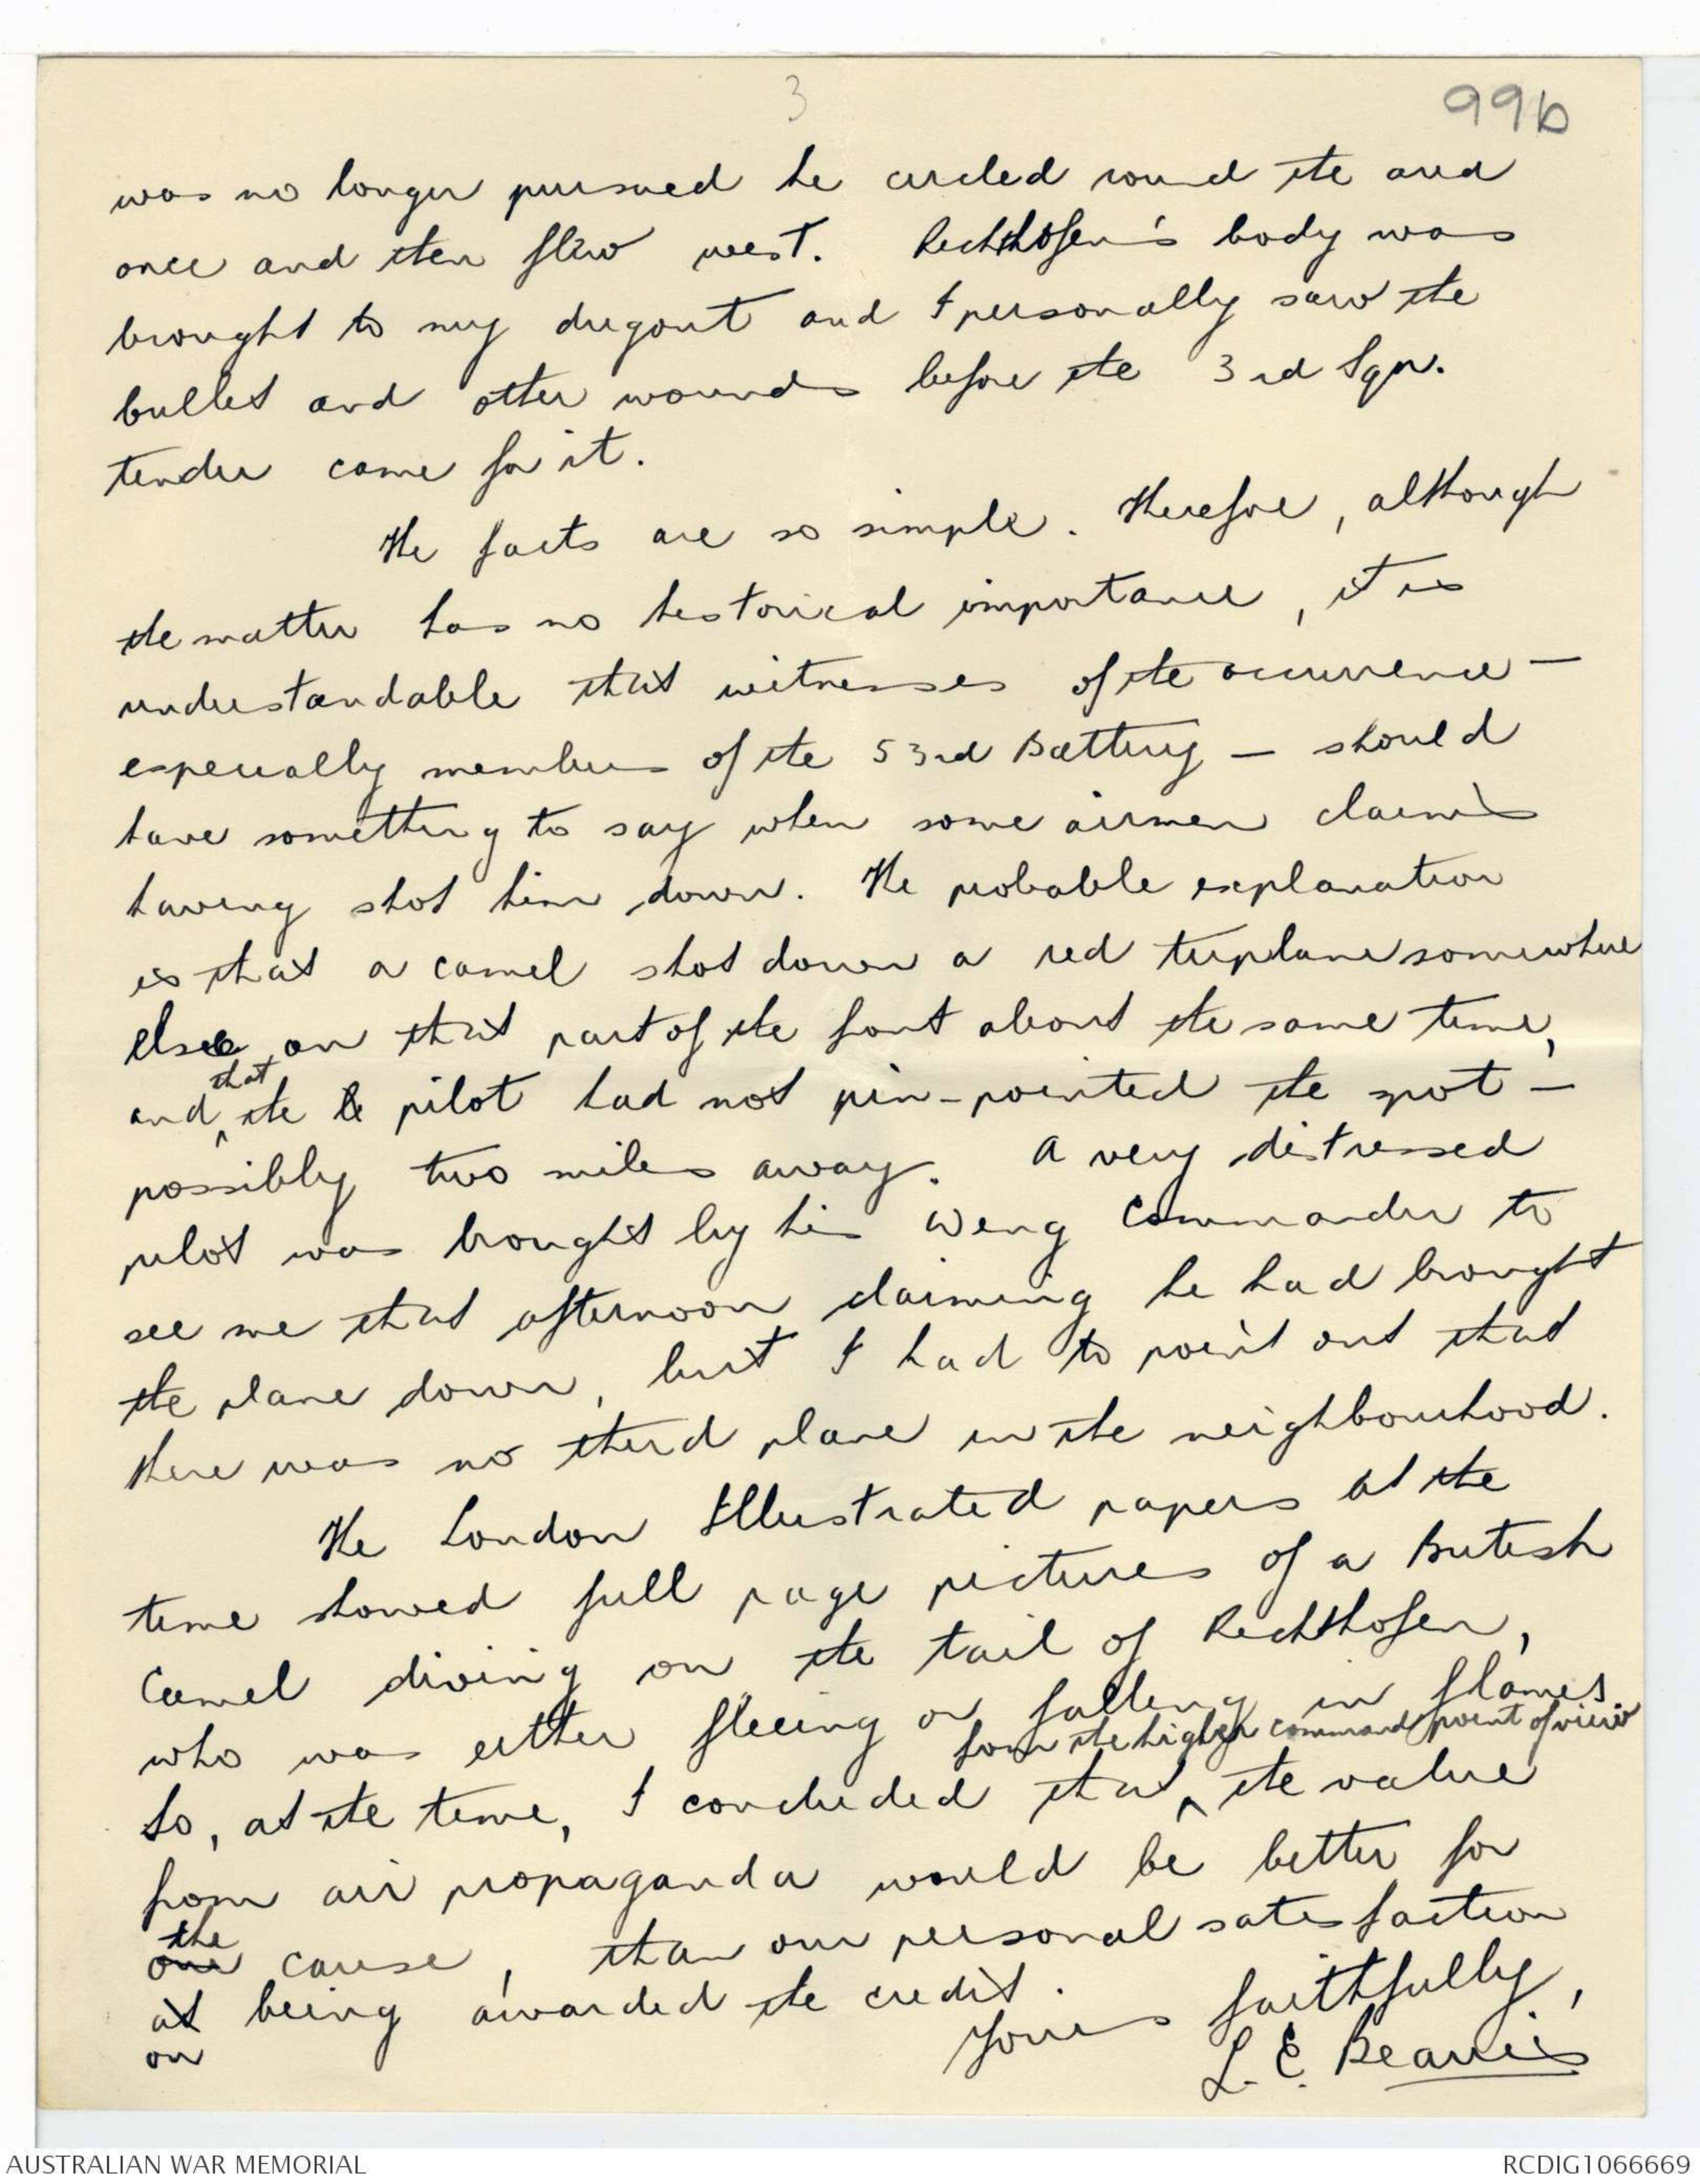 3
99b
was no longer pursued he circled round the area
once and then flew west. Richthofen's body was
brought to my dugout and I personally saw the
bullet and other wounds before the 3rd Sqn.
tender came for it.
The facts are so simple. Therefore, although
the matter has no historical importance, it is
understandable that witnesses of the occurrence —
especially members of the 53rd Battery — should
have something to say when some airmen claims
having shot him down. The probable explanation
is that a camel shot down a red triplane somewhere
else on that part of the front about the same time,
that
and the pilot had not pin-pointed the spot —
possibly two miles away. A very distressed
pilot was brought by his Wing Commander to
see me that afternoon claiming he had brought
the plane down, but I had to point out that
there was no third plane in the neighbourhood.
The London Illustrated papers at the
time showed full page pictures of a British
Camel diving on the tail of Richthofen,
who was either fleeing or falling in flames.
from the higher command point of view
So, at the time, I concluded that the value
from air propaganda would be better for
the
our cause, than our personal satisfaction
at being awarded the credit.
on
Yours faithfully,
L. E. Beavis
AUSTRALIAN WAR MEMORIAL
RCDIG1066669